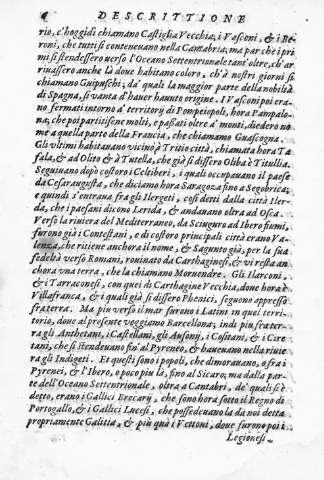 DESCRITTIONE
rio, c'hoggidì chiamano Castiglia Vecchia; i Vasconi, & i Be-
roni, che tutti si conteneuano nella Cantabria; ma par che i pri
mi si stendessero uerso l'Oceano Settentrionale tant'oltre, ch'ar
riuassero anche là doue habitano coloro, ch'à nostri giorni si
chiamano Guipuschi; da' quali la maggior parte della nobiltà
di Spagna, si vanta d'hauer hauuto origine. I Vasconi poi era-
no fermati intorno a' territorij di Pompeiopoli, hora Pampalo-
na; che poi partitisene molti, e passati oltre a' monti, diedero no
me a quella parte della Francia, che chiamamo Guascogna.
Gli vltimi habitauano vicino à Tritio città, chiamata hora Ta
fala, & ad Olito & à Tutella, che già si differo Oliba è Titullia.
Seguiuano dopò costoro i Celtiberi, i quali occupauano il paese
da Cesaraugusta, che diciamo hora Saragoza fino a Segobrica;
e quindi s'entraua fra gli Ilergeti, così detti dalla città Iler-
da, che i paesani dicono Lerida, & andauano oltra ad Osca.
Verso la riuiera del Mediterraneo, da Sciuguro ad Ibero fiumi,
furono già i Contestani, e di costoro principali città erano Va-
lenza, che ritiene anchora il nome, & Sagunto già, per la sua
fedeltà verso Romani, rouinato da Carthaginesi, & vi resta an
chora vna terra, che la chiamano Moruendre. Gli Ilarconi,
& i Tarraconesi, con quei di Carthagine Vecchia, doue hora è
Villafranca, & i quali già si differo Phenici, seguono appresso
fra terra. Ma più verso il mar furono i Latini in quel terri-
torio, doue al presente veggiamo Barcellona; indi più fra ter-
ra gli Anthetani, i Castellani, gli Ausonij, i Cositani, & i Cire
tani, che si stendeuano fin' al Pyreneo, & haueuano nella riuie
ra gli Indigeti. Et questi sono i popoli, che dimorauano, o fra i
Pyrenei, & l'Ibero, o poco più là, fino al Sicaro; ma dalla par-
te dell'Oceano Settentrionale, oltra a Cantabri, de' quali si è
detto, erano i Gallici Brecarij, che sono hora sotto il Regno di
Portogallo, & i Gallici Lucesi, che possedeuano la da noi detta
propriamente Galitia, & più quà i Vettoni, doue furono poi i
Legionesi